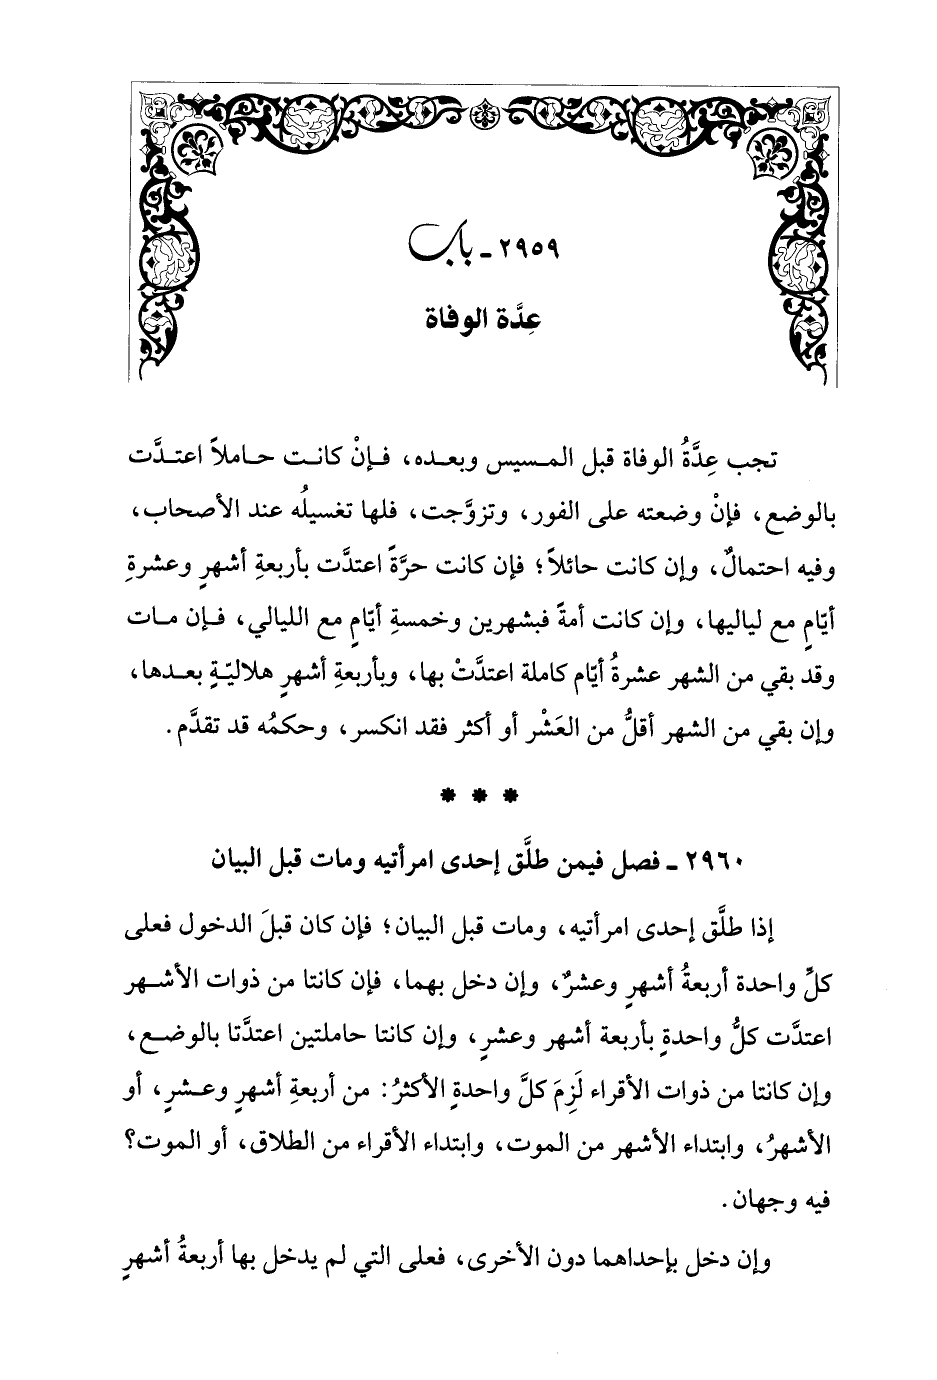 ٢٩٥٩ - باب
عِدَّة الوفاة
تجب عِدَّةُ الوفاة قبل المسيس وبعده، فإنْ كانت حاملاً اعتدَّت
بالوضع، فإنْ وضعته على الفور، وتزوَّجت، فلها تغسيلُه عند الأصحاب،
وفيه احتمالٌ، وإن كانت حائلاً؛ فإن كانت حرَّةً اعتدَّت بأربعةِ أشهرٍ وعشرةِ
أيّامٍ مع لياليها، وإن كانت أمةً فبشهرين وخمسةِ أيّامٍ مع الليالي، فإن مات
وقد بقي من الشهر عشرةُ أيّام كاملة اعتدَّتْ بها، وبأربعةِ أشهرٍ هلاليّةٍ بعدها،
وإن بقي من الشهر أقلُّ من العَشْر أو أكثر فقد انكسر، وحكمُه قد تقدَّم.
* * *
٢٩٦٠ - فصل فيمن طلَّق إحدى امرأتيه ومات قبل البيان
إذا طلَّق إحدى امرأتيه، ومات قبل البيان؛ فإن كان قبلَ الدخول فعلى
كلِّ واحدة أربعةُ أشهرٍ وعشرٌ، وإن دخل بهما، فإن كانتا من ذوات الأشهر
اعتدَّت كلُّ واحدةٍ بأربعة أشهر وعشرٍ، وإن كانتا حاملتين اعتدَّتا بالوضع،
وإن كانتا من ذوات الأقراء لَزِمَ كلَّ واحدةٍ الأكثرُ: من أربعةِ أشهرٍ وعشرٍ، أو
الأشهرُ، وابتداء الأشهر من الموت، وابتداء الأقراء من الطلاق، أو الموت؟
فيه وجهان.
وإن دخل بإحداهما دون الأخرى، فعلى التي لم يدخل بها أربعةُ أشهرٍ